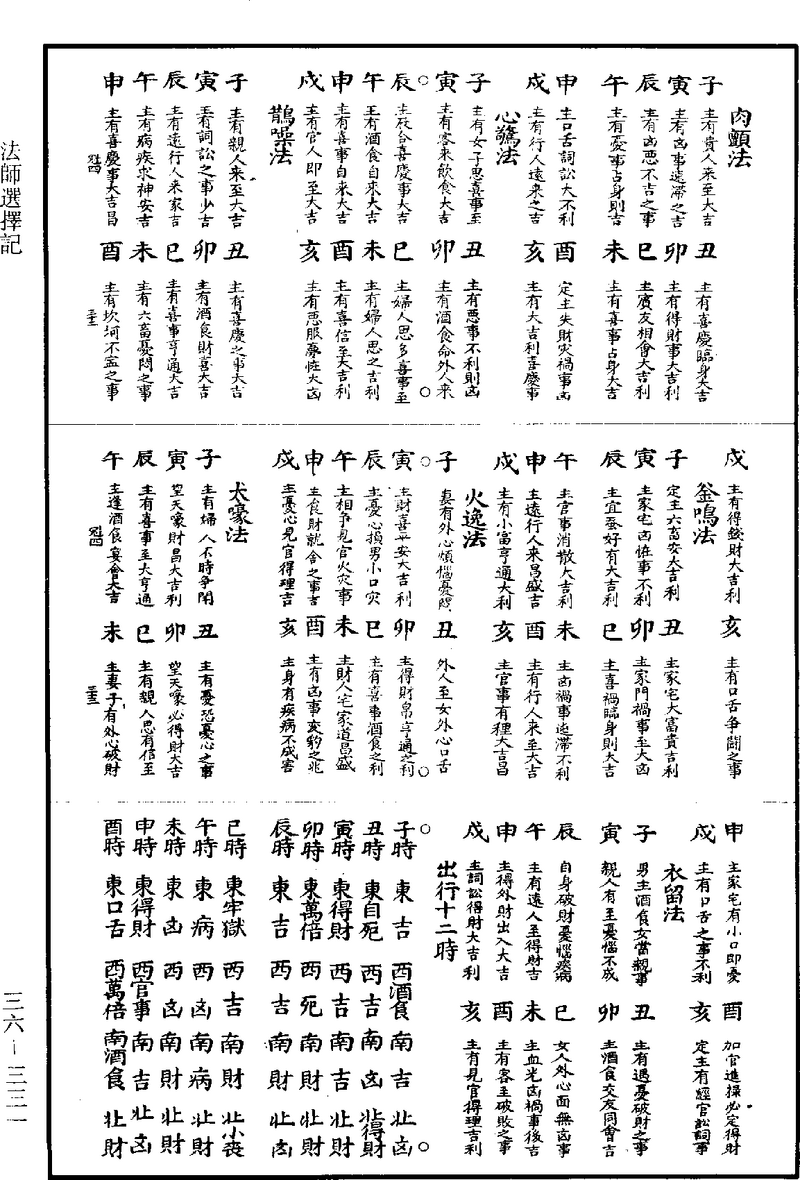 肉顫法
子 主有貴人来至大吉 丑 主有喜慶臨身大吉
寅 主有凶事遲滯之吉 卯 主有得財事大吉利
辰 主有凶惡不吉之事 巳 主賓友相會大吉利
午 主有憂事占身則吉 未 主有喜事占身大吉
申 主口舌詞訟大不利 酉 定主失財灾禍事凶
戌 主有行人遠来之吉 亥 主有大吉利喜慶事
心驚法
子 主有女子思喜事至 丑 主有悪事不利則凶
寅 主有客来飲食大吉 卯 主有酒食命外人来
辰 喜慶事大吉 巳 主婦人思多喜事至
午 主有酒食自来大吉 未 主有婦人思之吉利
申 主有喜事自来大吉 酉 主有喜信至大吉利
戌 主有官人即至大吉 亥 主有惡服夢怪大凶
鵲噪法
子 主有親人来至大吉 丑 主有喜慶之事大吉
寅 主有詞訟之事少吉 卯 主有酒食財喜大吉
辰 主有遠行人来家吉 巳 主有喜事亨通大吉
午 主有病疾求神安吉 未 主有六畜憂悶之事
申 主有喜慶事大吉昌 酉 主有坎坷不之事
戌 主有得錢財大吉利 亥 主有口舌争鬪之事
釜鳴法
子 定主六畜安大吉利 丑 主家宅大富貴吉利
寅 主家宅凶怪事不利 卯 主家門禍事至大凶
辰 主宜蚕好有大吉利 巳 主喜禍臨身則大吉
午 主官事消散大吉利 未 主凶禍事遲滯不利
申 主遠行人来昌盛吉 酉 主有行人来至大吉
戌 主有小富亨通大利 亥 主官事有理大吉昌
火逸法
子 妻有外心煩惱憂悶 丑 外人至女外心口舌
寅 主財喜平安大吉利 卯 主得財帛亨通之利
辰 主憂心損男小口灾 巳 主有喜事酒食之利
午 主相争見官火灾事 未 主財人宅家道昌盛
申 主食財就舍之事吉 酉 主有凶事変豹之兆
戌 主憂心見官得理吉 亥 主身有疾病不成害
犬嚎法
子 主有婦人不時争鬧 丑 主有憂恐憂心之事
寅 望天嚎財昌大吉利 卯 望天嚎必得財大吉
辰 主有喜事至大亨通 巳 主有親人思有信至
午 主逢酒食宴會大吉 未 主妻子有外心破財
申 主家宅有小口即憂 酉 加官進祿必定得財
戌 主有口舌之事不利 亥 定主有經官訟詞事
衣留法
子 男主酒食女當親事 丑 主有遇憂破財之事
寅 親人有至憂惱不成 卯 主酒食交友同會吉
辰 自身破財憂惱痰病 巳 女人外心面無凶事
午 主有遠人至得財吉 未 主血光凶禍事後吉
申 主得外財出入大吉 酉 主有客至破敗之事
戌 主詞訟得財大吉利 亥 主有見官得理吉利
出行十二時
子時 東吉 西酒食 南吉 北凶
丑時 東自死 西吉 南凶 北得財
寅時 東得財 西吉 南吉 北財
卯時 東萬倍 西死 南財 北財
辰時 東吉 西吉 南財 北凶
巳時 東牢獄 西吉 南財 北小喪
午時 東病 西凶 南病 北財
未時 東凶 西凶 南財 北財
申時 東得財 西官事 南吉 北凶
酉時 東口舌 西萬倍 南酒食 北財
法師選擇記
三六－三三一